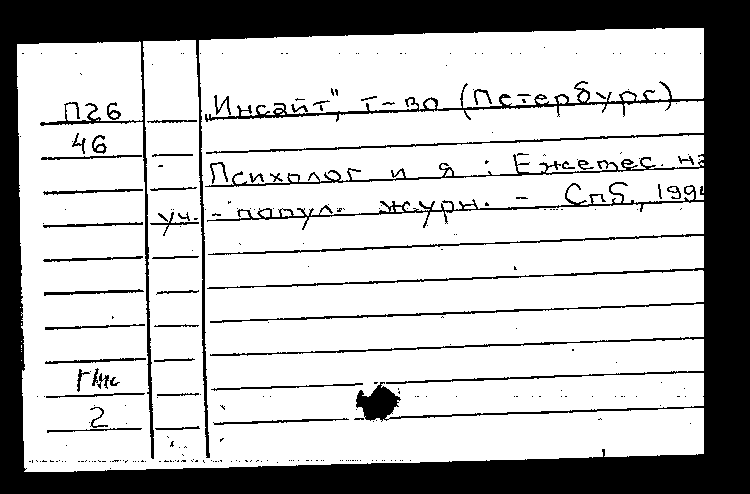 П26
46
„Инсайт", т-во (Петербург)
Психолог и я : Ежемес. на
уч. - попул. журн. - Спб., 1994
2